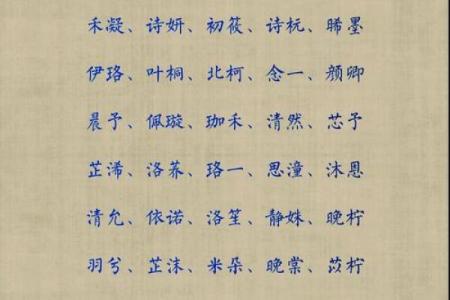 禾凝、诗妍、初筱、诗杬、晞墨
伊珞、叶桐、北柯、念一、颜卿
晨予、佩璇、珈禾、清然、芯予
芷浠、洛荞、珞一、思潼、沐恩
清允、依诺、洛笙、静姝、晚柠
羽兮、芷沫、米朵、晚棠、苡柠